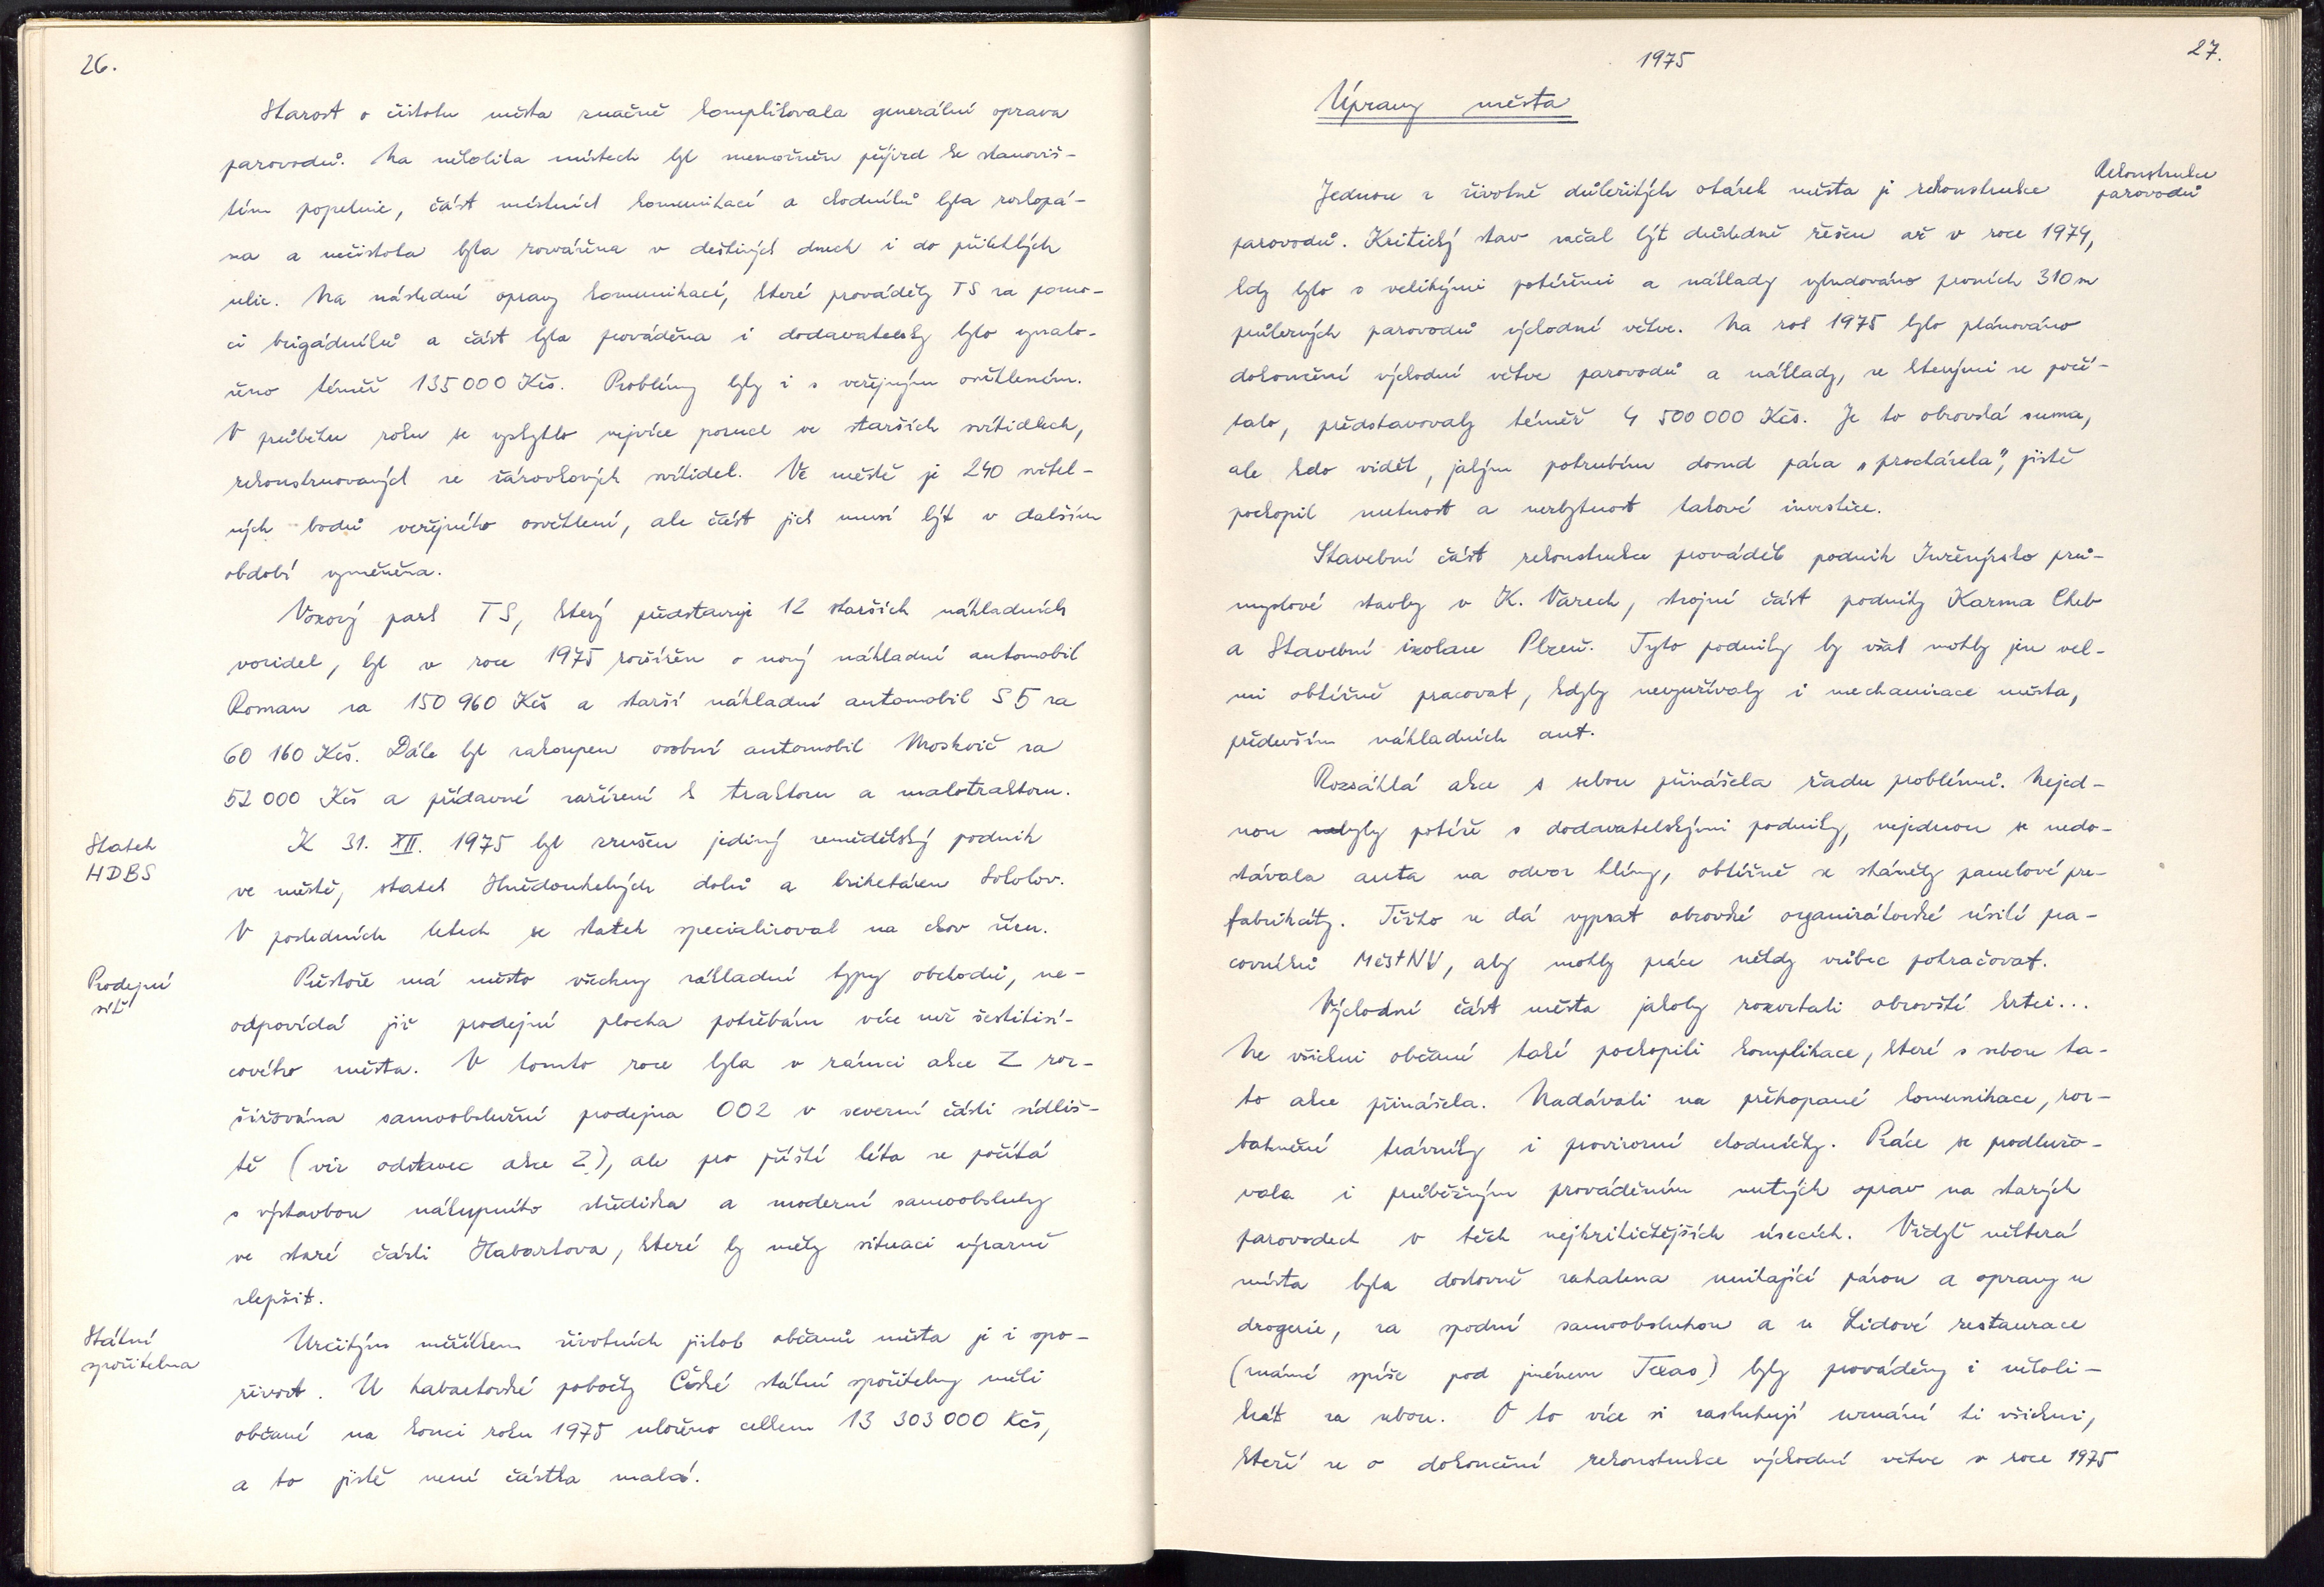 26.
Starost o čistotu města značně komplikovala generální oprava
parovodů. Na několika místech byl znemožněn příjezd ke stanoviš-
tím popelnic, část místních komunikací a chodníků byla rozkopá-
na a nečistota byla roznášena v deštivých dnech i do přilehlých
ulic. Na následné opravy komunikací, které prováděly TS za pomo-
ci brigádníků a část byla prováděna i dodavatelsky bylo vynalo-
ženo téměř 135 000 Kčs. Problémy byly i s veřejným osvětlením.
V průběhu roku se vyskytlo nejvíce poruch ve starších svítidlech,
rekonstruovaných ze žárovkových svítidel. Ve městě je 240 světel-
ných bodů veřejného osvětlení, ale část jich musí být v dalším
období vyměněna.
Vozový park TS, který představuje 12 starších nákladních
vozidel, byl v roce 1975 rozšířen o nový nákladní automobil
Roman za 150 960 Kčs a starší nákladní automobil S5 za
60 160 Kčs. Dále byl zakoupen osobní automobil Moskvič za
52 000 Kčs a přídavné zařízení k traktoru a malotraktoru.
Statek
HDBS
K 31. XII. 1975 byl zrušen jediný zemědělský podnik
ve městě, statek Hnědouhelných dolů a briketáren Sokolov.
V posledních letech se statek specializoval na chov ovcí.
Prodejní
síť
Přestože má město všechny základní typy obchodů, ne-
odpovídá již prodejní plocha potřebám více než šestitisí-
cového města. V tomto roce byla v rámci akce Z roz-
šiřována samoobslužní prodejna 002 v severní části sídliš-
tě (viz odstavec akce Z), ale pro příští léta se počítá
s výstavbou nákupního střediska a moderní samoobsluhy
ve staré části Habartova, které by měly situaci výrazně
zlepšit.
Státní
spořitelna
Určitým měřítkem životních jistot občanů města je i spo-
řivost. U habartovské pobočky České státní spořitelny měli
občané na konci roku 1975 uloženo celkem 13 303 000 Kčs,
a to jistě není částka malá.
1975
27.
Úpravy města
Rekonstrukce
parovodů
Jednou z životně důležitých otázek města je rekonstrukce
parovodů. Kritický stav začal být důsledně řešen až v roce 1974,
kdy bylo s velikými potížemi a náklady vybudováno prvních 310 m
průlezných parovodů východní větve. Na rok 1975 bylo plánováno
dokončení východní větve parovodů a náklady, se kterými se počí-
talo, představovaly téměř 4 500 000 Kčs. Je to obrovská suma,
ale kdo viděl, jakým potrubím dosud pára „procházela", jistě
pochopil nutnost a nezbytnost takové investice.
Stavební část rekonstrukce prováděl podnik Inženýrsko prů-
myslové stavby v K. Varech, strojní část podniky Karma Cheb
a Stavební izolace Plzeň. Tyto podniky by však mohly jen vel-
mi obtížně pracovat, kdyby nevyužívaly i mechanizace města,
především nákladních aut.
Rozsáhlá akce s sebou přinášela řadu problémů. Nejed-
nou byly potíže s dodavatelskými podniky, nejednou se nedo-
stávala auta na odvoz hlíny, obtížně se sháněly panelové pre-
fabrikáty. Těžko se dá vypsat obrovské organizátorské úsilí pra-
covníků MěstNV, aby mohly práce někdy vůbec pokračovat.
Východní část města jakoby rozvrtali obrovští krtci...
Ne všichni občané také pochopili komplikace, které s sebou ta-
to akce přinášela. Nadávali na překopané komunikace, roz-
bahněné trávníky i provizorní chodníčky. Práce se prodlužo-
vala i průběžným prováděním nutných oprav na starých
parovodech v těch nejkritičtějších úsecích. Vždyť některá
místa byla doslovně zahalena unikající párou a opravy u
drogerie, za spodní samoobsluhou a u Lidové restaurace
(známé spíše pod jménem Texas) byly prováděny i několi-
krát za sebou. O to více si zasluhují uznání ti všichni,
kteří se o dokončení rekonstrukce východní větve v roce 1975